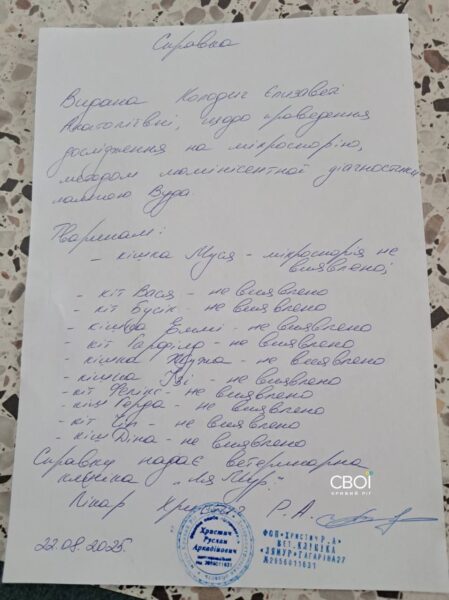 Справка
Видана Колодич Єлизаветі
Анатоліївні, щодо проведення
дослідження на мікроспорію,
методом люмінісентної діагностики
лампою Вуда.
Тваринам:
- кішка Муся - мікроспорія не
виявлено;
- кіт Вася - не виявлено
- кіт Бусік - не виявлено
- кішка Еммі - не виявлено
- кіт Гарфілд - не виявлено
- кішка Жужа - не виявлено
- кішка - не виявлено
- кіт Фелікс - не виявлено
- кіш Герда - не виявлено
- кіт - не виявлено
- кіш Діна - не виявлено
Справку надає ветеринарна
клініка "Ля Мур".
Лікар Христич Р.А.
22.08.2025
Христич
Руслан
Аркадійович
ФОП «ХРИСТИЧ Р.А»
ВЕТ.КЛІНІКА
«ЛЯМУР» ГАГАРІНА27
№2656011631
СВОЇ
КРИВИЙ РІГ